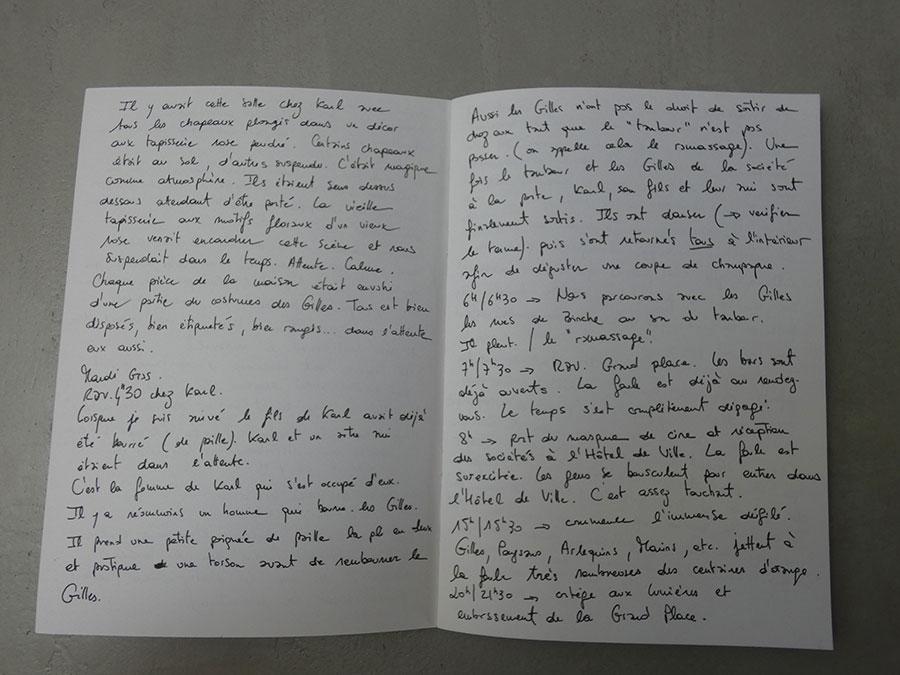 Il y avait cette salle chez Karl avec
tous les chapeaux plongés dans un décor
aux tapisserie rose poudré. Certains chapeaux
était au sol, d'autres suspendu. C'était magique
comme atmosphère. Ils étaient sens dessus
dessous attendant d'être porté. La vieille
tapisserie aux motifs floraux d'un vieux
rose venait encadrer cette scène et nous
suspendait dans le temps. Attente. Calme.
Chaque pièce de la maison était envahi
d'une partie du costumes des Gilles. Tous est bien
disposés, bien étiquetés, bien rangés... dans l'attente
eux aussi.
Mardi Gras.
RDV. 4h30 chez Karl.
Lorsque je suis arrivé le fils de Karl avait déjà
été bourré (de paille). Karl et un autre ami
étaient dans l'attente.
C'est la femme de Karl qui s'est occupé d'eux.
Il y a néanmoins un homme qui bourre les Gilles.
Il prend une petite poignée de paille la pli en deux
et pratique une torson avant de rembourrer le
Gilles.
Aussi les Gilles n'ont pas le droit de sortir de
chez eux tant que le "tambour" n'est pas
passer. (on appelle cela le ramassage). Une
fois le tambour et les Gilles de la société
à la porte, Karl, son fils et leur ami sont
finalement sortis. Ils ont danser (→ verifier
le terme). puis s'ont retournés tous à l'intérieur
afin de déguster une coupe de champagne.
6h/6h30 → Nous parcourons avec les Gilles
les rues de Binche au son du tambour.
Il pleut. / le "ramassage".
7h/7h30 → RDV. Grand place. Les bars sont
déjà ouverts. La foule est déjà au rendez-
vous. Le temps s'est complètement dégagé.
8h → port du masque de cire et réception
des sociétés à l'Hôtel de Ville. La foule est
surexcitée. Les gens se bousculent pour entrer dans
l'Hôtel de Ville. C'est assez touchant.
15h/15h30 → commence l'immense défilé.
Gilles, Paysans, Arlequins, Marins, etc. jettent à
la foule très nombreuses des centaines d'orange.
20h/21h30 → cortège aux lumières et
embrasement de la Grand Place.